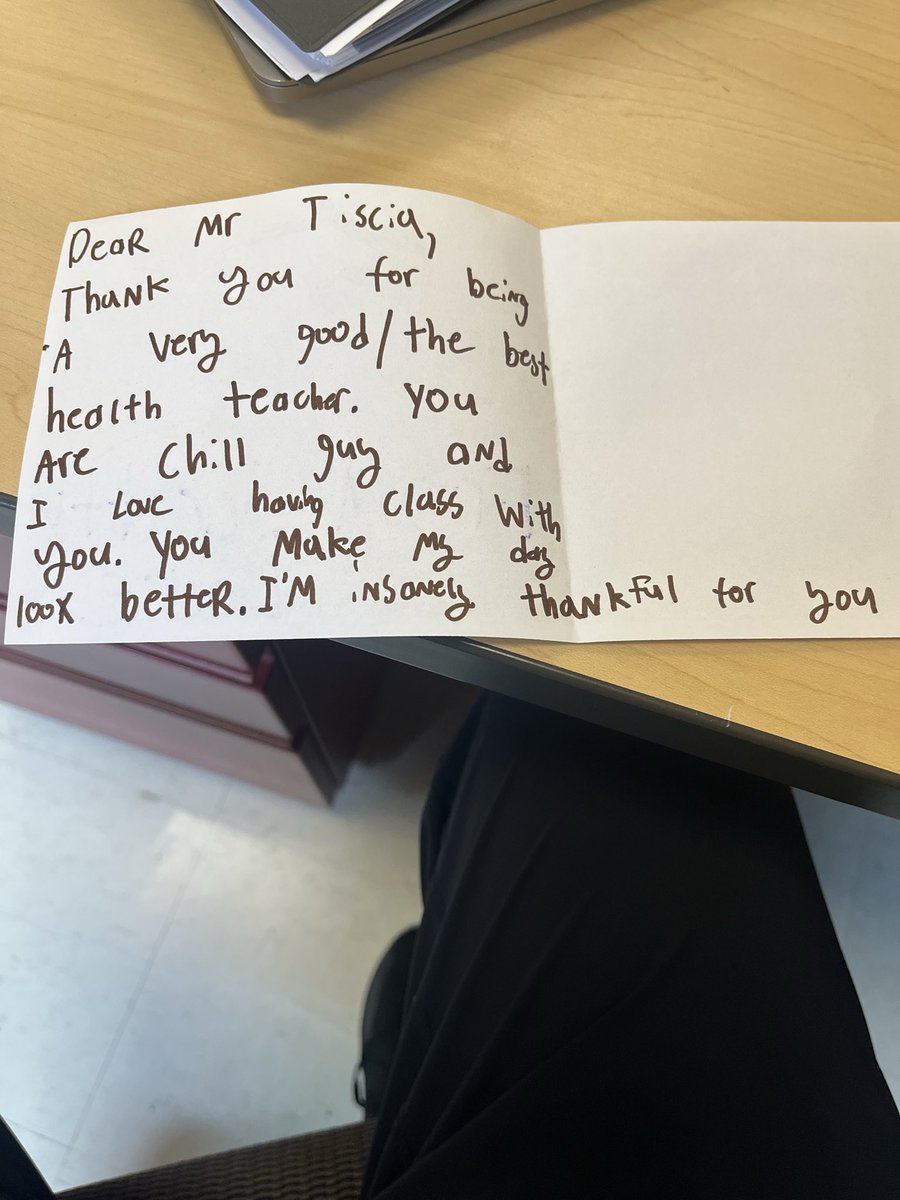 Dear Mr Tiscia,
Thank you for being
A very good/the best
health teacher. you
Are chill guy and
I Love having class With
you. you Make my day
100x better. I'M insanely thankful for you